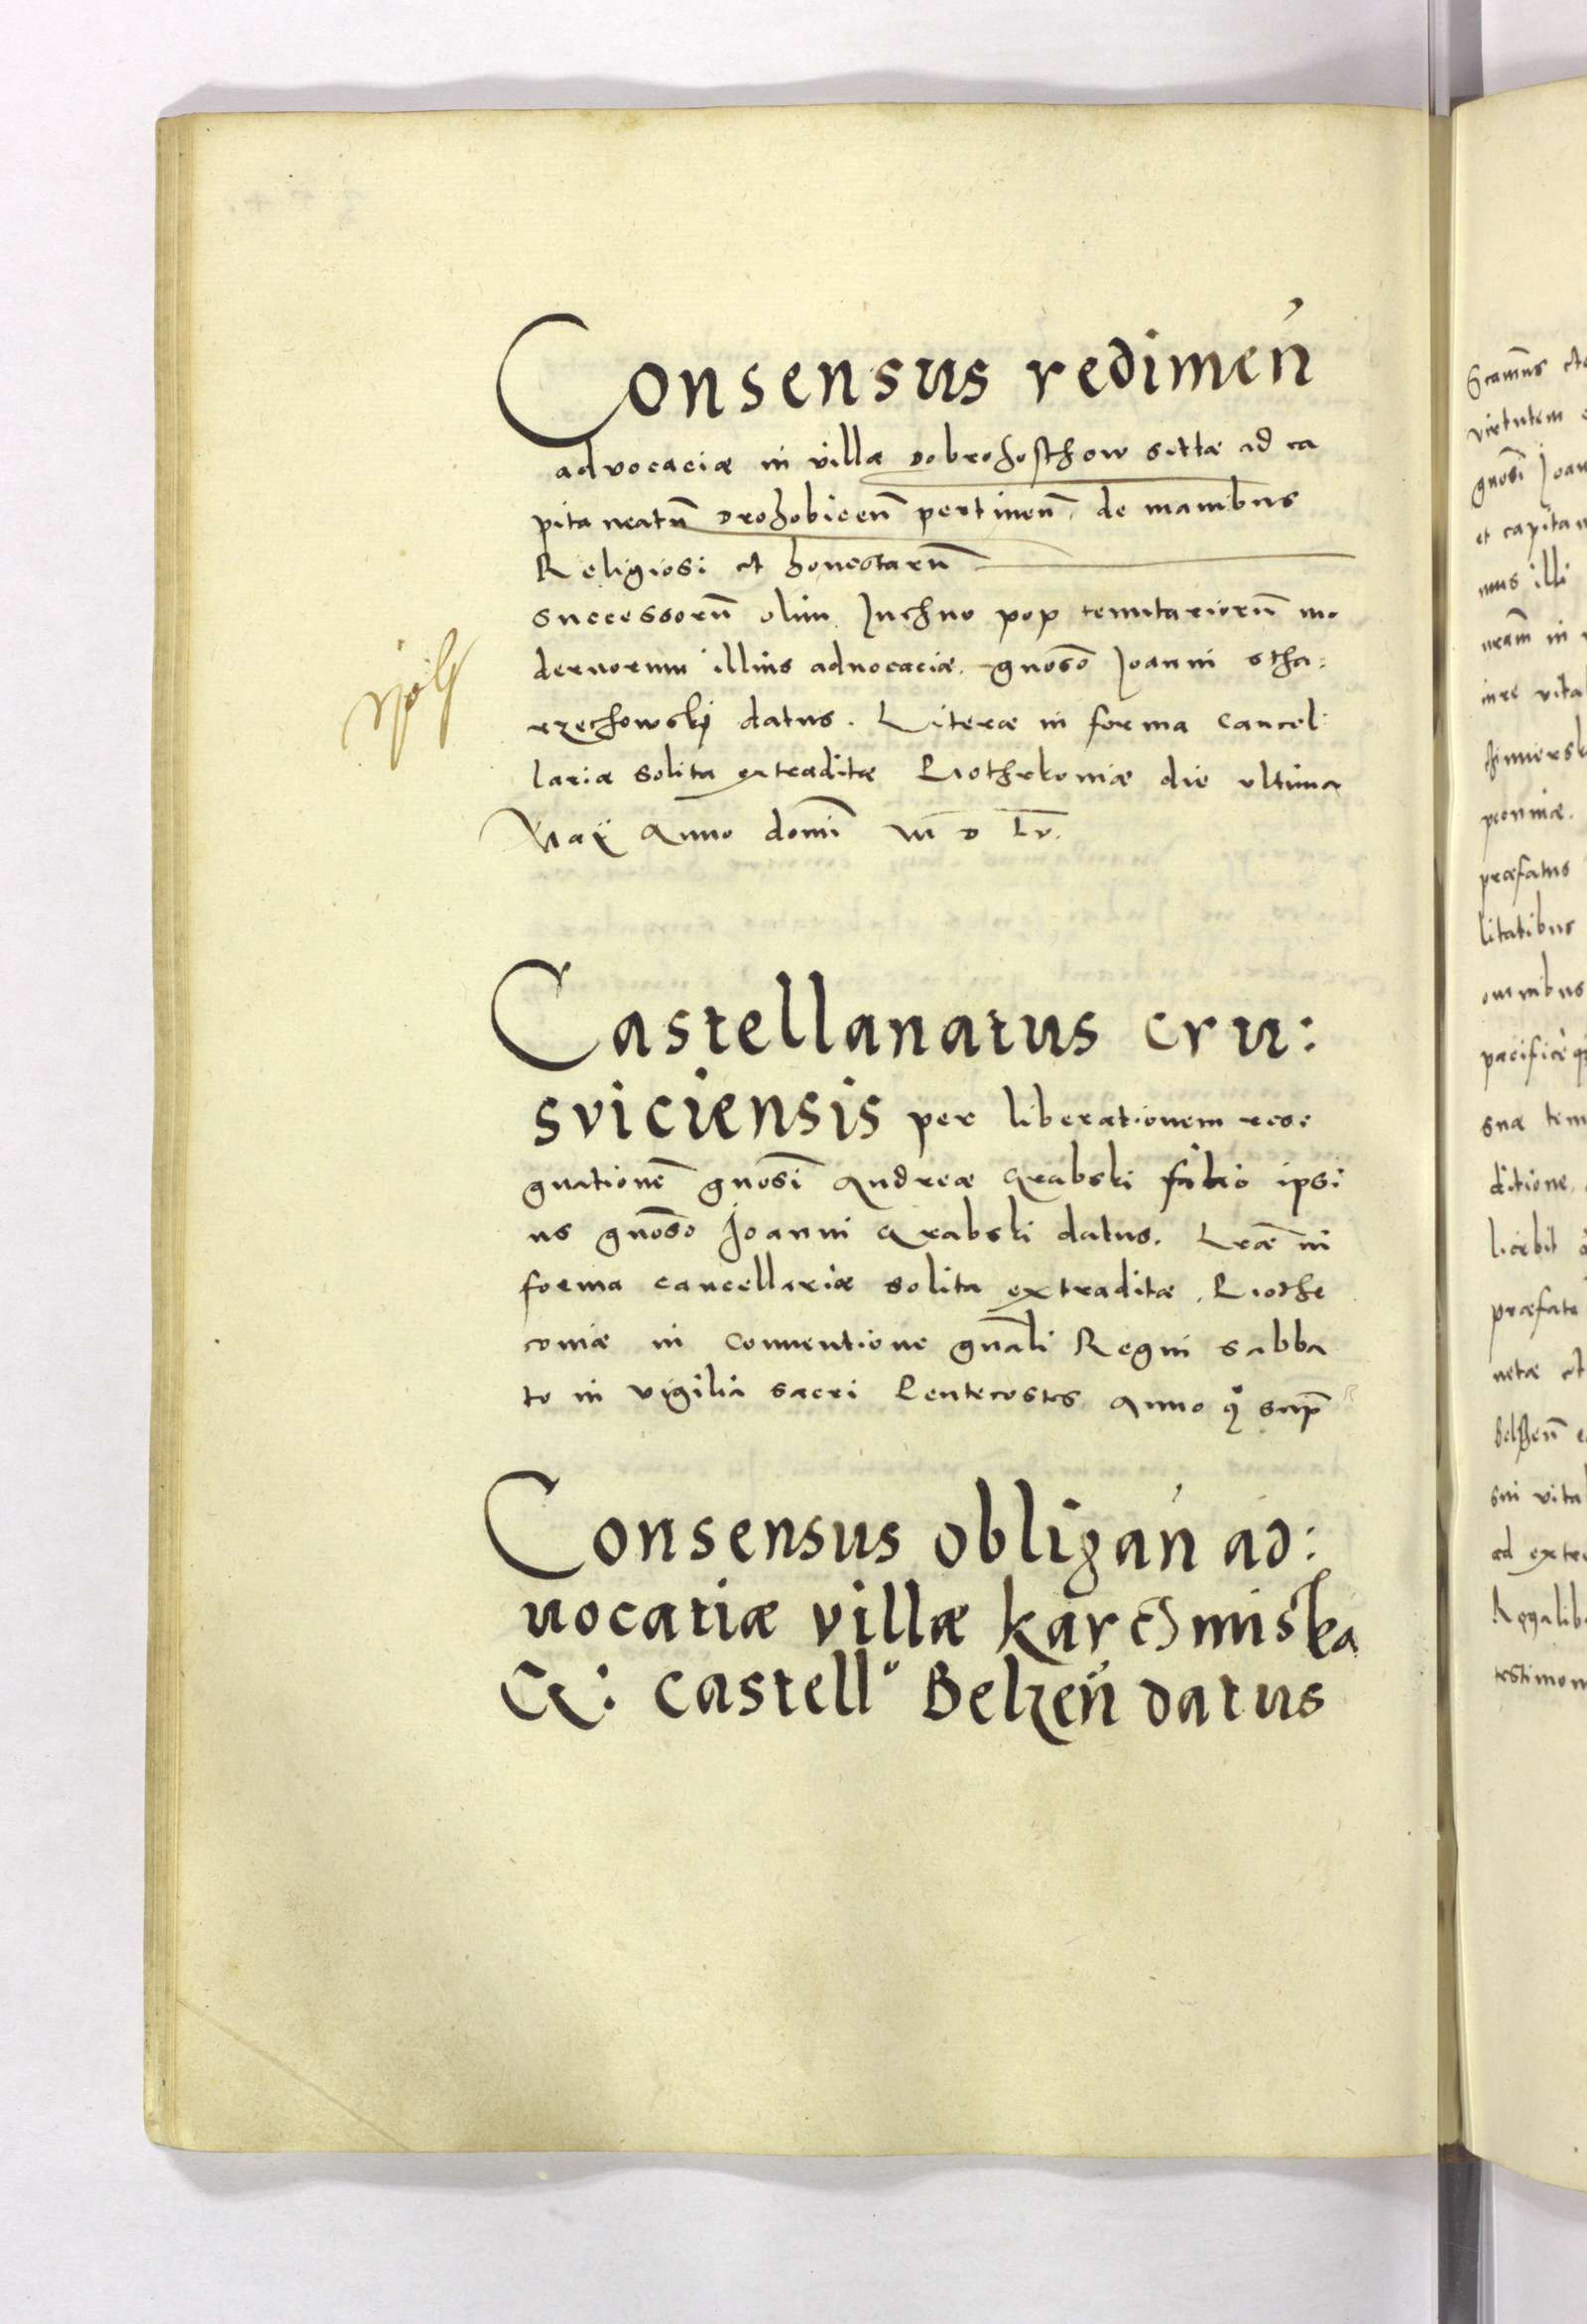 Consensus redimen̄
advocaciæ in villa Dobrohosthow sittæ ad ca
pitaneatū Drohobicen̄ pertinen̄. de manibus
Religiosi et honestarū
successorū olim Juchno pop tenutariorū mo
dernorum illius aduocaciæ. gnōso Joanni stha:
rzechowskj datus. Literæ in forma cancel:
laria solita extraditæ Piothrkoviæ die ultima
Maij Anno domī M D Lv.
Castellanatus cru:
sviciensis per liberationem resi
gnationē gnōsi Andreæ Grabski filio ipsi
us gnōso Joanni Grabski datus. Lrǣ in
forma cancellariæ solita extraditæ. Piothr
coviæ in conventione gnāli Regni sabba
to in vigilia sacri Pentecostes Anno qͦ sup̄
Consensus obligan̄ ad:
uocatiæ villæ karchmiska
G: castellͦ Belzen̄ datus
Gcamus
virtutem
gnōsi Joan
et capitan
mus illi
nram̄ in
iure vita
proniæ.
præfatus
litatibus
omnibus
pacifice
suæ tem
ditione
licebit
præfata
netæ et
Belzen̄
sui vita
ad extre
Regalib
testimon